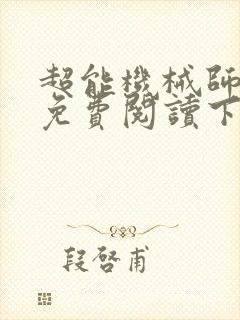 超能機械師
免費閱讀下
段啓甫